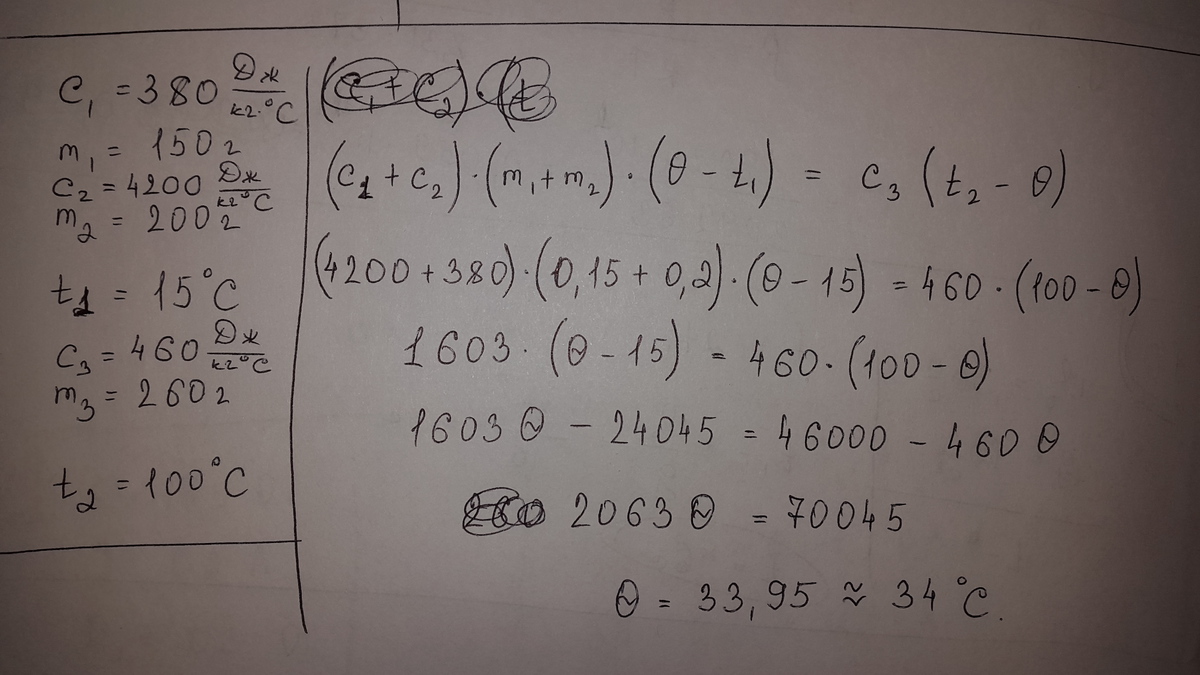 C₁ = 380 Дж/кг·°С
m₁ = 150 г
C₂ = 4200 Дж/кг°С
m₂ = 200 г
t₁ = 15°С
C₃ = 460 Дж/кг°С
m₃ = 260 г
t₂ = 100°С
(C₁ + C₂) · (t
(C₁ + C₂) · (m₁ + m₂) · (θ − t₁) = C₃ (t₂ − θ)
(4200 + 380) · (0,15 + 0,2) · (θ − 15) = 460 · (100 − θ)
1603 · (θ − 15) = 460 · (100 − θ)
1603 θ − 24045 = 46000 − 460 θ
2063 θ = 70045
θ = 33,95 ≈ 34 °С.